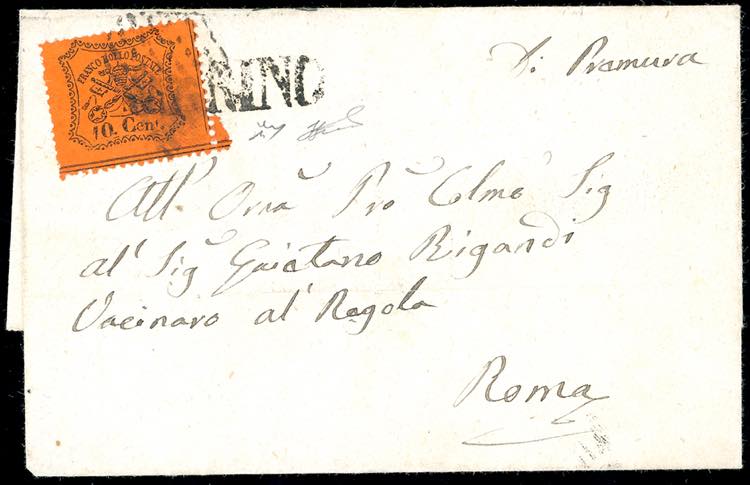 Di Premura
FRANCO BOLLO POSTALE
10. Cent.
NINO
All' Orna Pro Colmo Sig
al' Sig Gaietano Rigandi
Vacinaro al' Regola
Roma